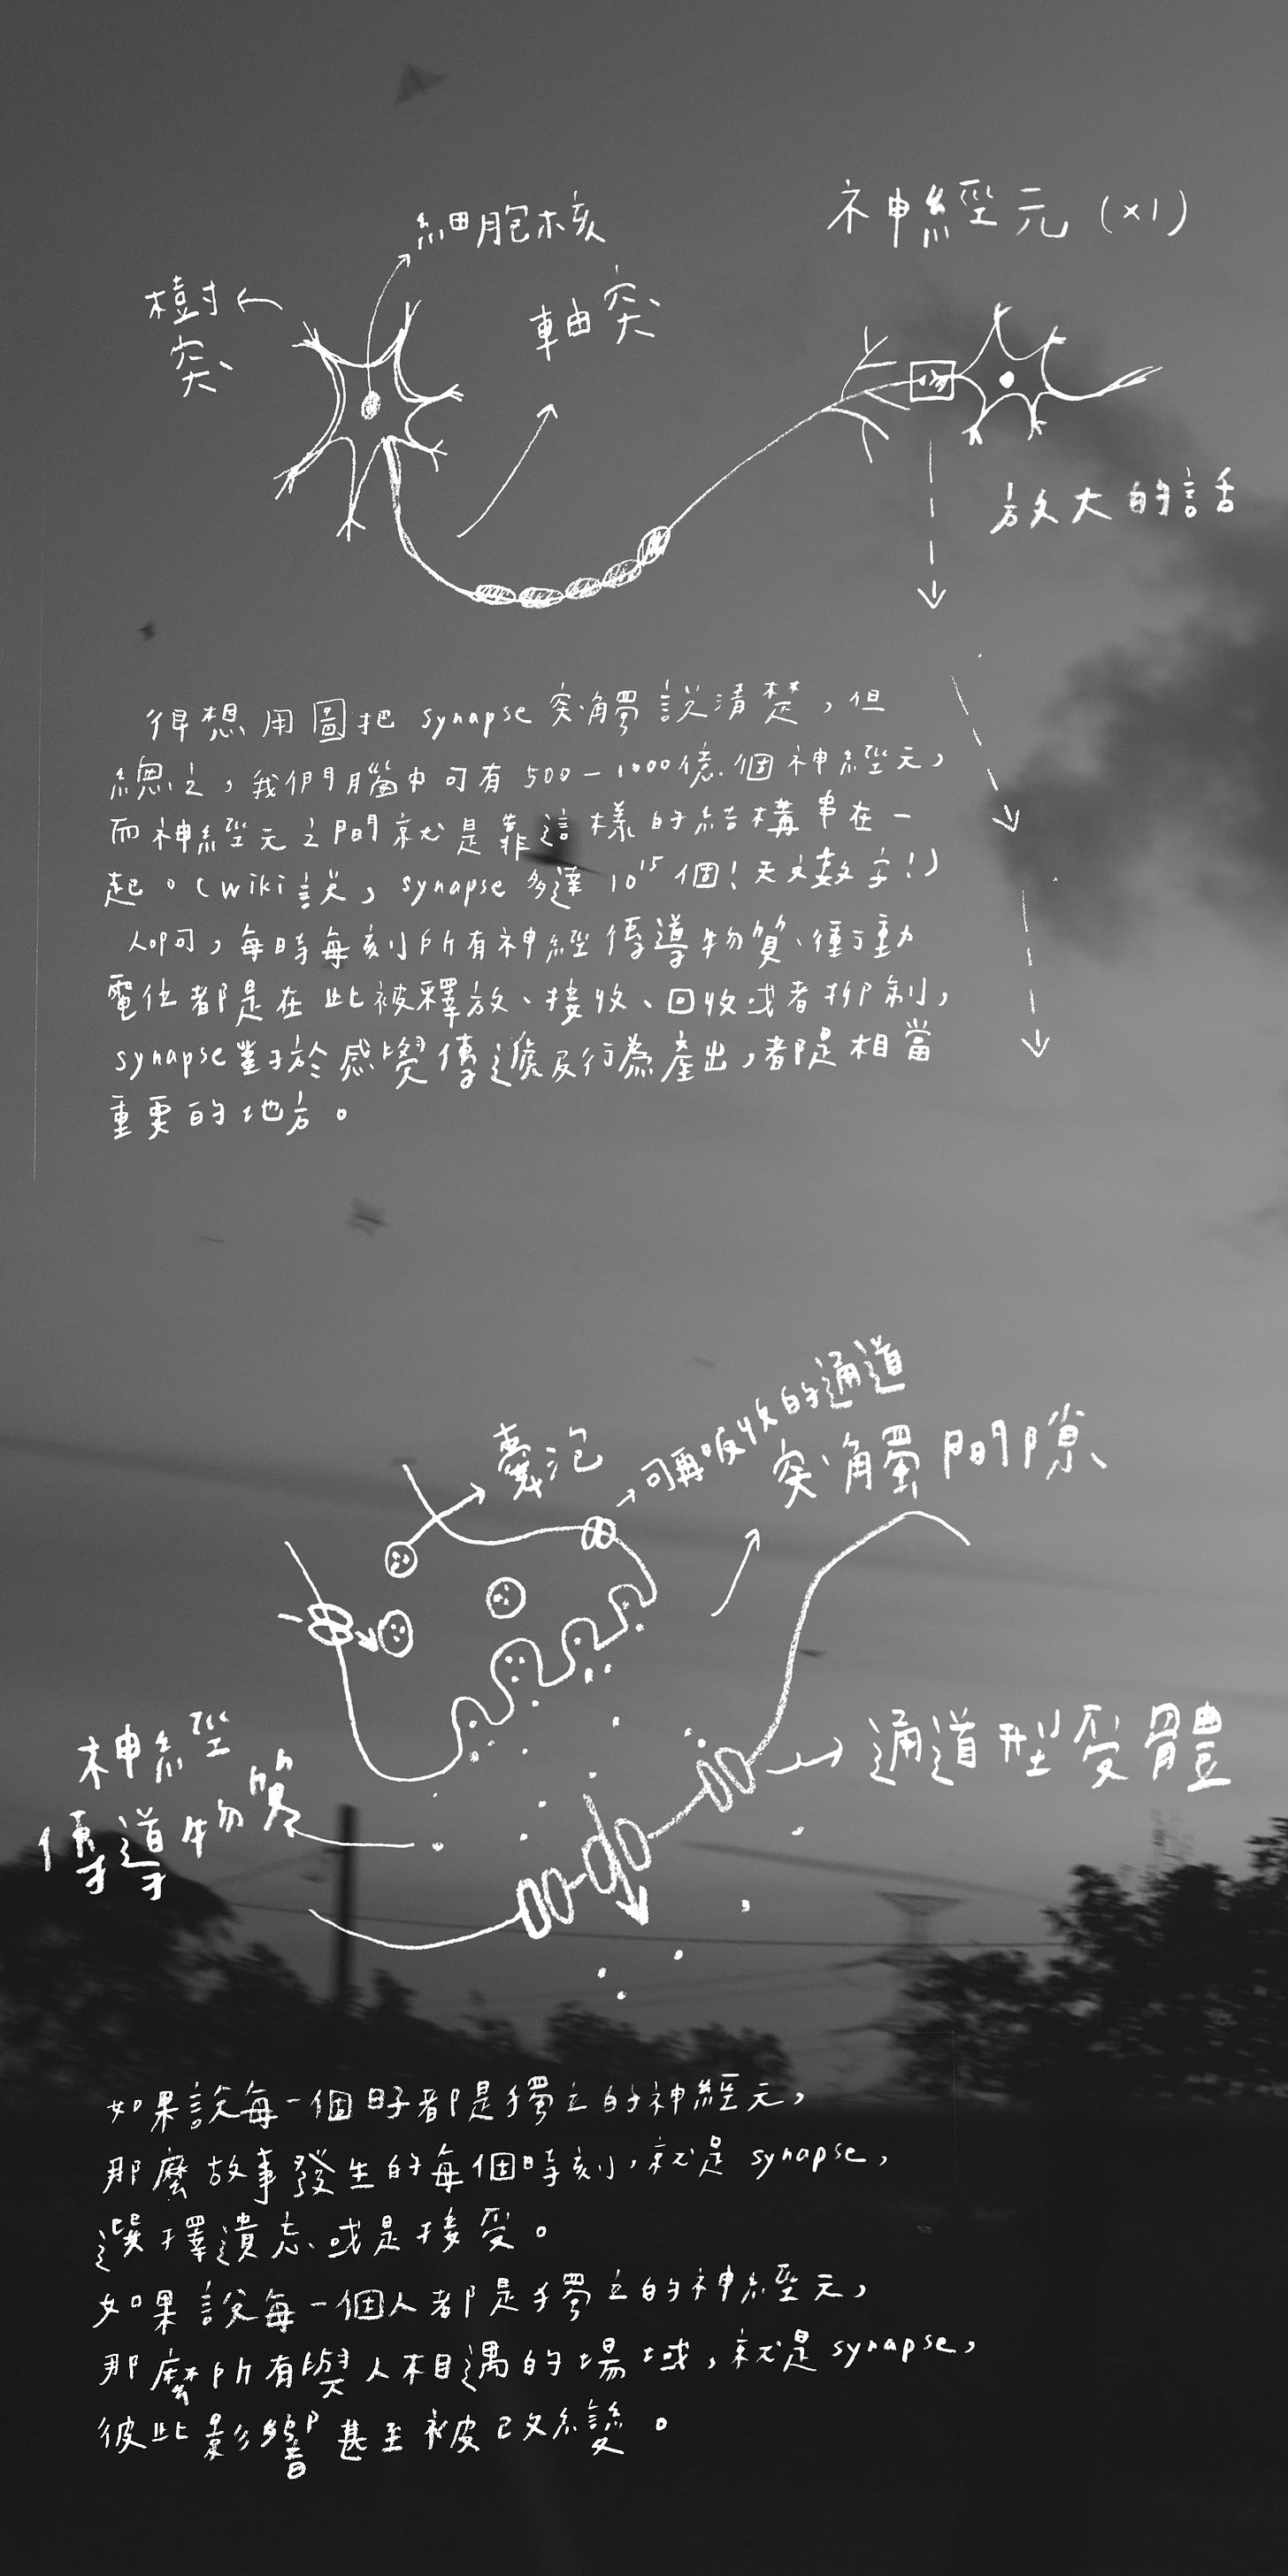 細胞核
神經元 (×1)
樹突
軸突
放大的話
得想用圖把 synapse 突觸說清楚，但
總之，我們腦中可有 500－1000億個神經元，
而神經元之間就是靠這樣的結構串在一
起。(Wiki說，synapse 多達 10¹⁵ 個！天文數字！)
人啊，每時每刻所有神經傳導物質、衝動
電位都是在此被釋放、接收、回收或者抑制，
synapse對於感覺傳遞及行為產出，都是相當
重要的地方。
囊泡
可再吸收的通道
突觸間隙
神經
傳導物質
通道型受體
如果說每一個日子都是獨立的神經元，
那麼故事發生的每個時刻，就是 synapse，
選擇遺忘或是接受。
如果說每一個人都是獨立的神經元，
那麼所有與人相遇的場域，就是 synapse，
彼此影響甚至被改變。